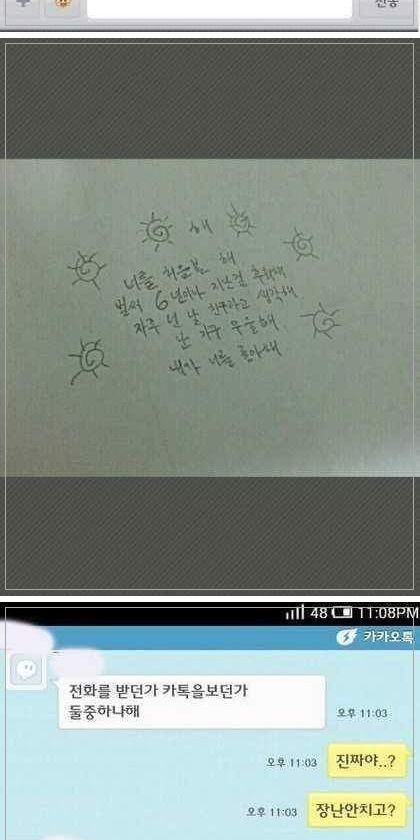 전송
해
너를 처음본 해
벌써 6년이나 지난걸 축하해
자주 넌 날 친구라고 생각해
난 자꾸 우울해
내가 너를 좋아해
48 11:08PM
카카오톡
전화를 받던가 카톡을보던가
둘중하나해
오후 11:03
오후 11:03 진짜야..?
오후 11:03 장난안치고?